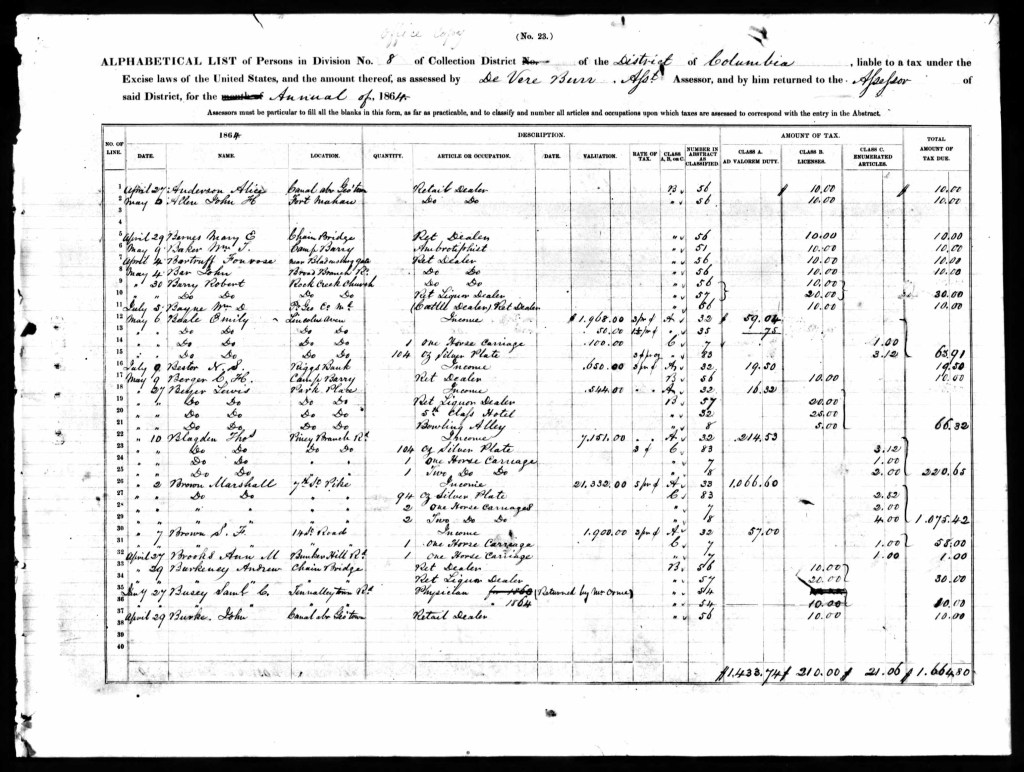 Office Copy
(No. 23.)
ALPHABETICAL LIST of Persons in Division No. 8 of Collection District No. of the District of Columbia, liable to a tax under the
Excise laws of the United States, and the amount thereof, as assessed by De Vere Burr Asst. Assessor, and by him returned to the Assessor of
said District, for the month of Annual of, 1864
Assessors must be particular to fill all the blanks in this form, as far as practicable, and to classify and number all articles and occupations upon which taxes are assessed to correspond with the entry in the Abstract.
NO. OF LINE. 1864 DESCRIPTION. AMOUNT OF TAX. TOTAL AMOUNT OF TAX DUE.
DATE. NAME. LOCATION. QUANTITY. ARTICLE OR OCCUPATION. DATE. VALUATION. RATE OF TAX. CLASS A, B, or C. NUMBER IN ABSTRACT AS CLASSIFIED. CLASS A. AD VALOREM DUTY. CLASS B. LICENSES. CLASS C. ENUMERATED ARTICLES.
1 April 27 Anderson Alice Canal abv Geo'town Retail Dealer B 56 $ 10.00 $ 10.00
2 May 6 Allen John H Fort Mahan Do Do " 56 10.00 10.00
3
4
5 April 29 Barnes Mary E Chain Bridge Ret Dealer " 56 10.00 10.00
6 May 9 Baker Wm T. Camp Barry Ambrotiphist " 51 10.00 10.00
7 April 4 near Bladensburg gate Ret Dealer " 56 10.00 10.00
8 May 4 Bar John Broad Branch Rd. Do Do " 56 10.00 10.00
9 " 30 Barry Robert Rock Creek Church Do Do " 56 10.00
10 " " Do Do Do Do Ret Liquor Dealer " 57 20.00 30.00
11 July 3 Bayne Wm D. Pr Geo Co Md. Cattle Dealer, Ret Dealer " 56 10.00 10.00
12 May 6 Beale Emily Lincoln Aven Income $ 1,968.00 3 pr ct A 32 $ 59.04
13 " " Do Do Do Do .50.00 " 35 .75
14 " " Do Do Do Do 1 one Horse Carriage .100.00 C 7 1.00
15 " " Do Do Do Do 104 oz Silver Plate " 83 3.12 63.91
16 July 9 Bestor N. S. Riggs Bank Income .650.00 3 pr ct A 32 19.50 19.50
17 May 9 Berger C. H. Camp Barry Ret Dealer B 56 10.00 10.00
18 " 27 Beyer Lewis Park Place Income .544.00 " " A 32 16.32
19 " " Do Do Do Do Ret Liquor Dealer B 57 20.00
20 " " Do Do Do Do 5th Class Hotel " 32 25.00
21 " " Do Do Do Do Bowling Alley " 8 5.00 66.32
22 " 10 Blagden Thos Piney Branch Rd Income 7,151.00 " " A 32 214.53
23 " " Do Do Do Do 104 oz Silver Plate 3 ¢ C 83 3.12
24 " " Do Do " " 1 one Horse Carriage " 7 1.00
25 " " Do Do " " 1 Two Do Do " 18 2.00 220.65
26 " 2 Brown Marshall 7th St Pike Income 21,332.00 5 pr ct A 33 1,066.60
27 " " Do Do " " 94 oz Silver Plate C 83 2.82
28 " " " " " " 2 one Horse Carriages " 7 2.00
29 " " " " " " 2 Two Do Do " 18 4.00 1,075.42
30 " 7 Brown S. F. 14 St Road Income 1.900.00 3 pr ct A 32 57.00
31 " " " " " " 1 one Horse Carriage C 7 1.00 58.00
32 April 27 Brooks Ann M Bunker Hill Rd. 1 one Horse Carriage " 7 1.00 1.00
33 " 29 Andrew Chain Bridge Ret Dealer B 56 10.00
34 " " " " " " Ret Liquor Dealer " 57 20.00 30.00
35 27 Busey Saml C. Tennallytown Rd Physician for 1863 (Returned by Mr Orme) " 54
36 " " " " 1864 " 54 10.00 10.00
37 April 29 Burke John Canal abv Geo'town Retail Dealer " 56 10.00 10.00
38
39
40
$1.433.74 $ 210.00 $ 21.06 $ 1.664.80